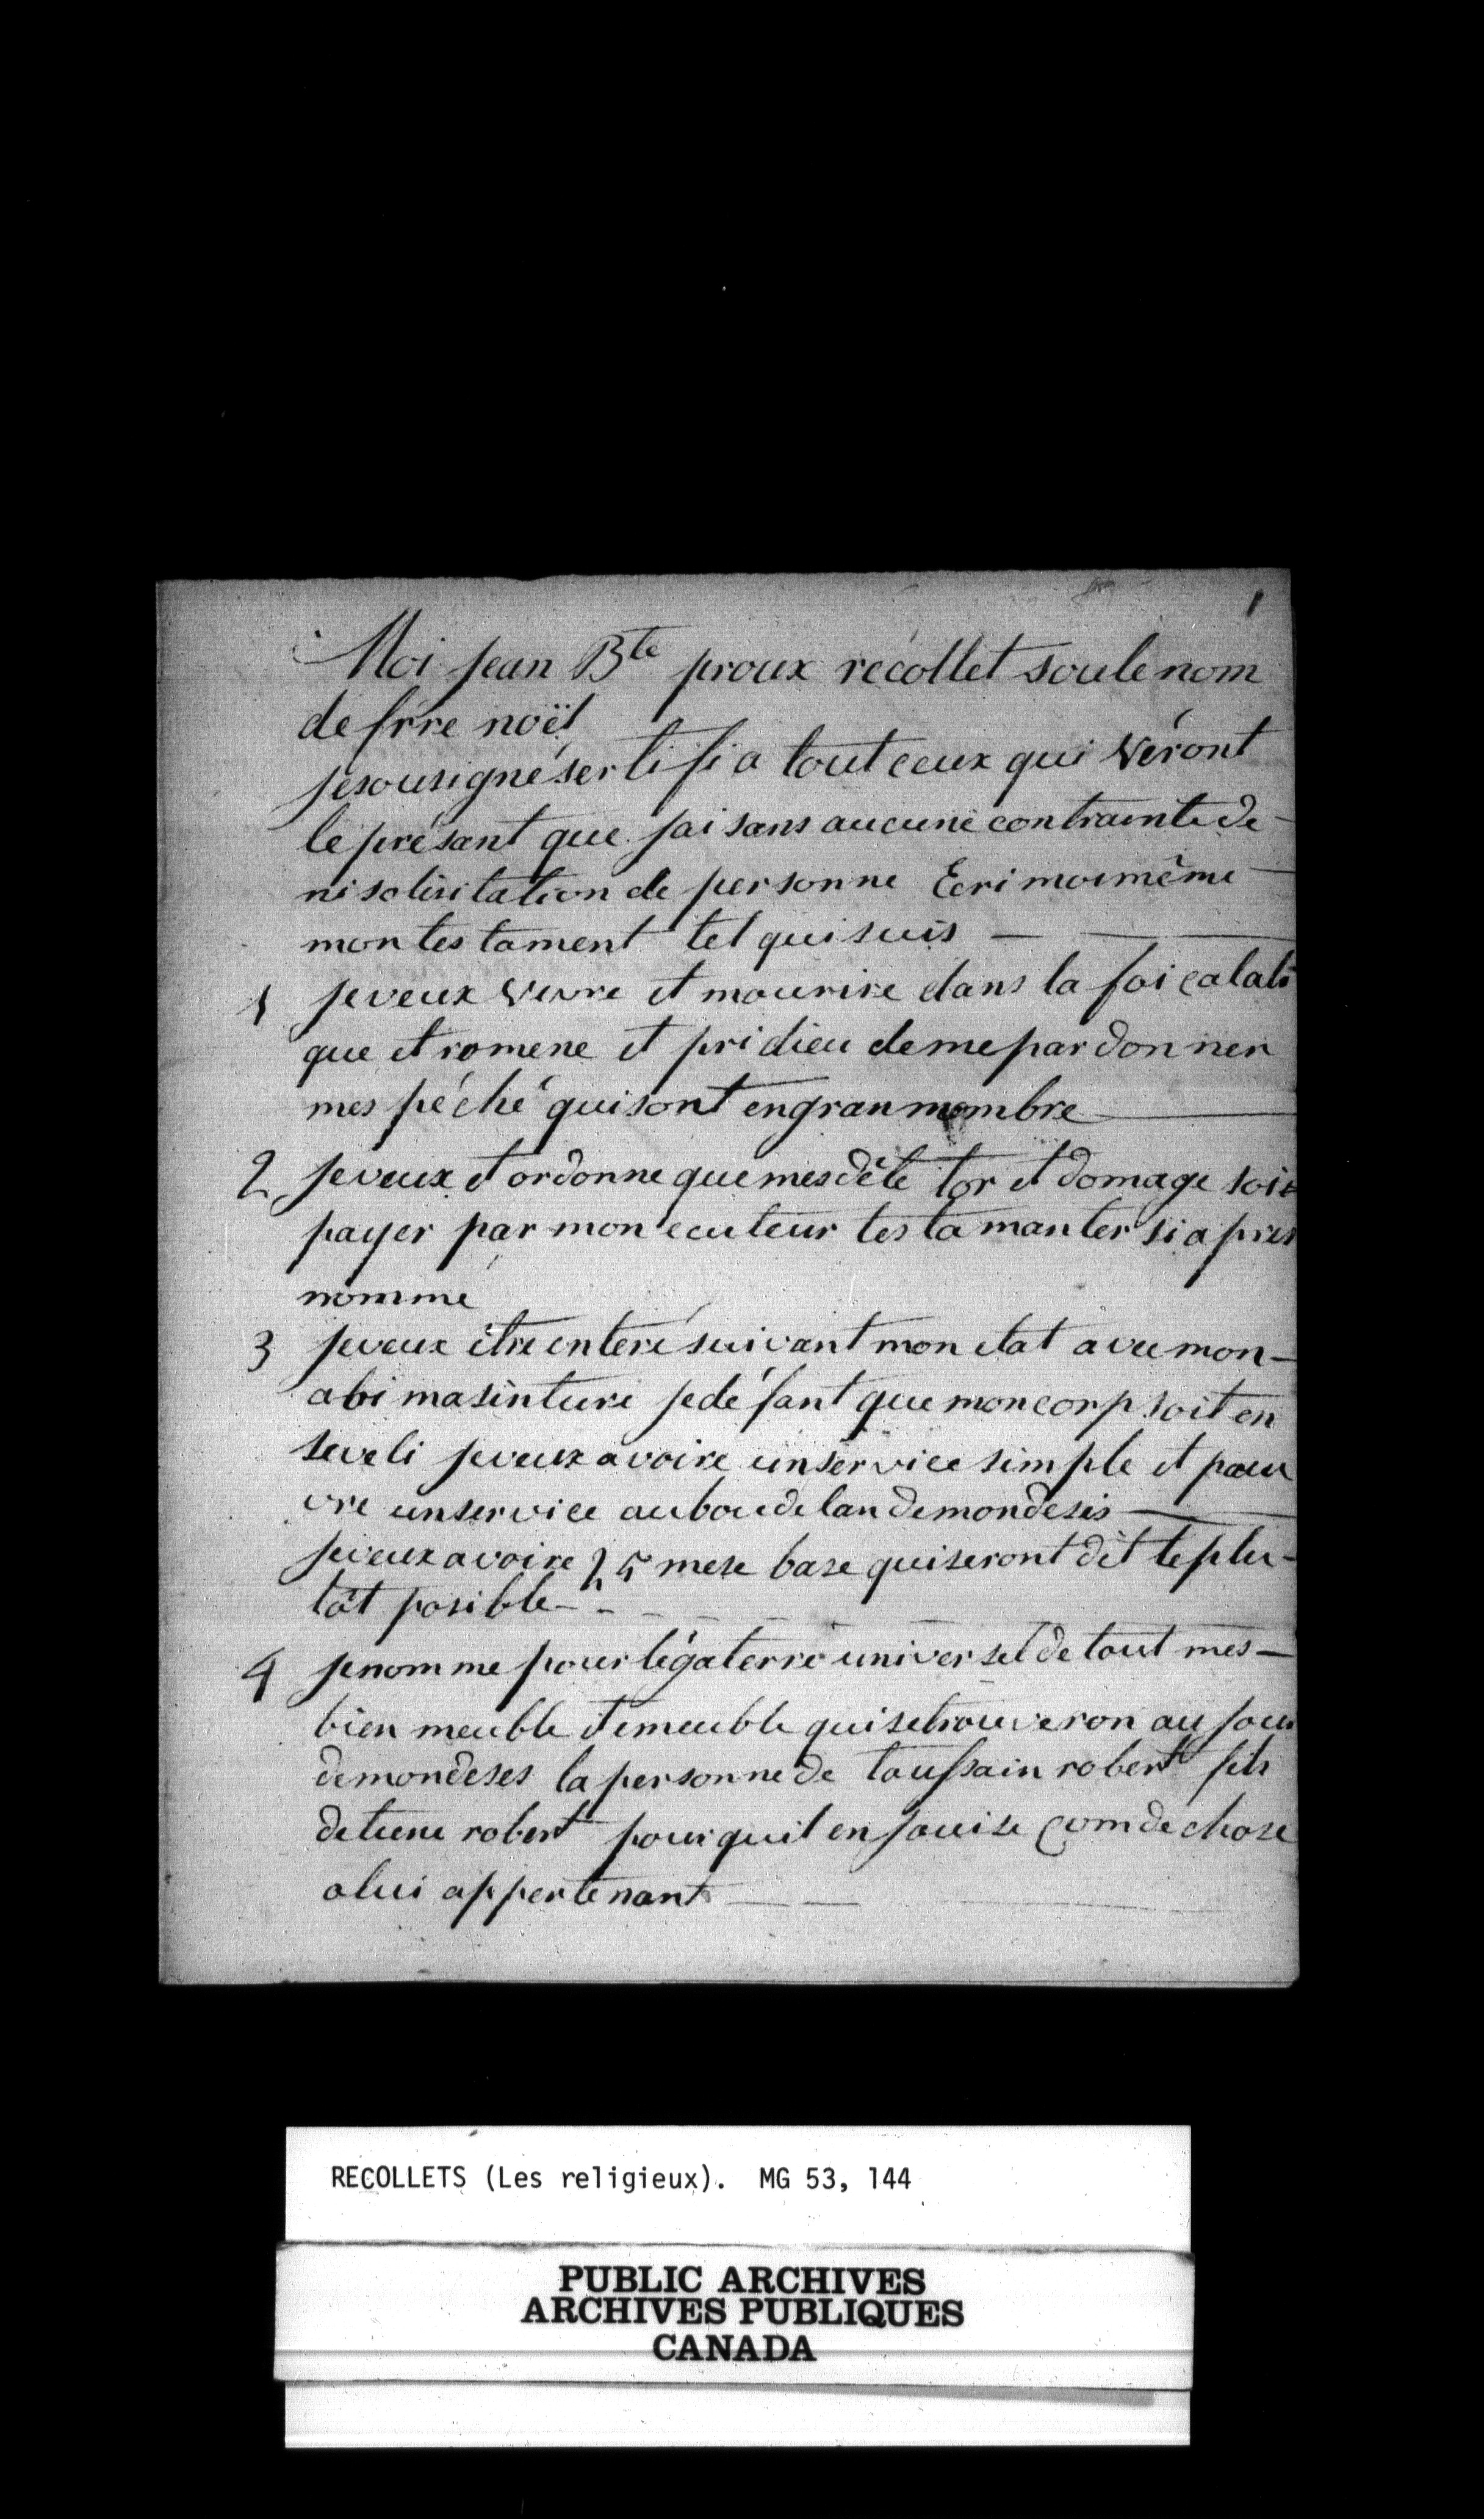 1
Moi jean Bte proux récollet soule nom
de frre noël
jesousigné sertifi a tout ceux qui véront
le présant que jai sans aucune contrainte de
ni solisitation de personne Ecri moimême
mon testament tel qui suis
1 jeveux vivre et mourire dans la foi catali
que et romene et pri dieu de me pardonner
mes péché qui sont engran nombre
2 jeveux et ordonne que mes dête tor et domage soit
payer par mon ecuteur testamanter si apres
nommé
3 jeveux être enteré suivant mon etat avec mon
abi ma sinture je défant que mon corp soit en
seveli jeveux avoire un service simple et pau
vre un service au bou de lan de mon desis
jeveux avoire 25 mese base qui seront dit le plu
tôt posible
4 je nomme pour légaterre universel de tout mes
bien meuble et emeuble qui se trouveron au jour
de mon deses la personne de toussain robert fils
detiene robert pour quil en jouise com de chose
a lui appertenant
RECOLLETS (Les religieux). MG 53, 144
PUBLIC ARCHIVES
ARCHIVES PUBLIQUES
CANADA